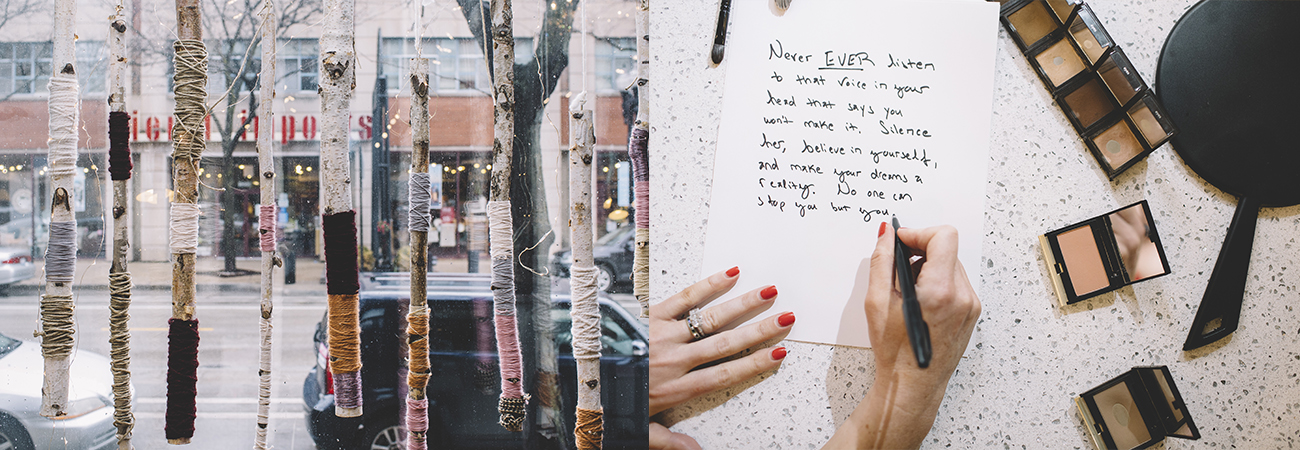 Never EVER listen
to that voice in your
head that says you
won't make it. Silence
her, believe in yourself,
and make your dreams a
reality. No one can
stop you but you.